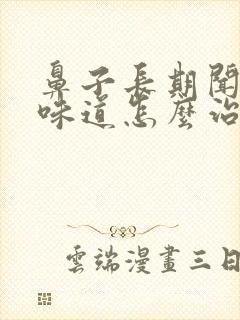 鼻子長期聞
味道怎麼治
雲端漫畫三日